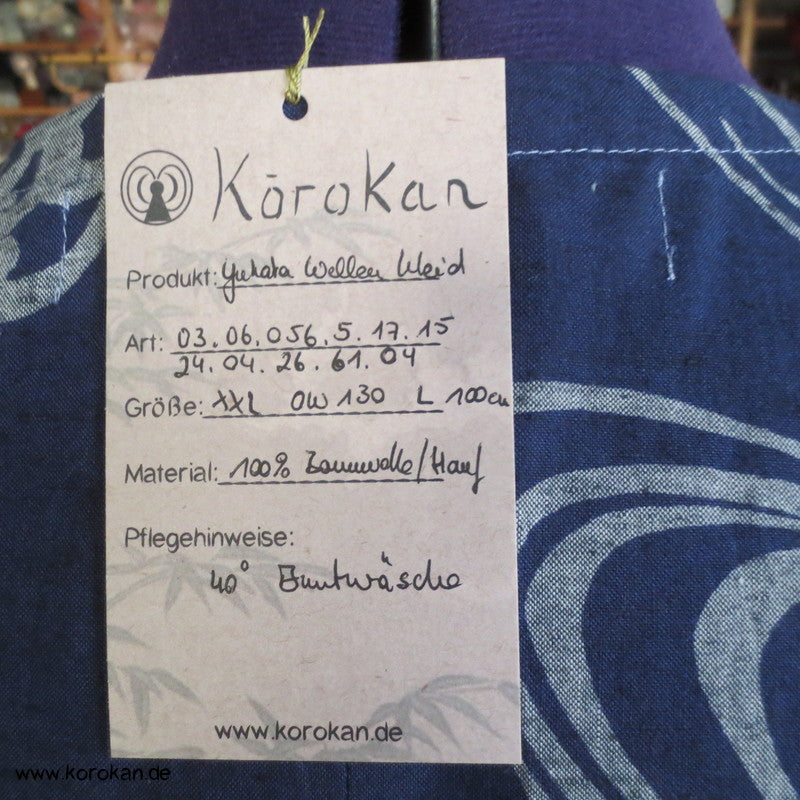 Kōrokan
Produkt: Yukata Wellen Kleid
Art: 03.06.056.5.17.15
24.04.26.61.04
Größe: XXL OW 130 L 100cm
Material: 100% Baumwolle/Hanf
Pflegehinweise:
40° Buntwäsche
www.korokan.de
www.korokan.de